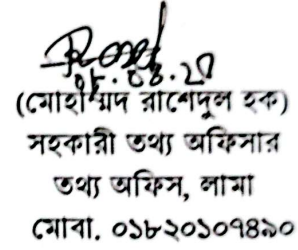 ০৮.০৪.২১
(মোহাম্মদ রাশেদুল হক)
সহকারী তথ্য অফিসার
তথ্য অফিস, লামা
মোবা. ০১৮২০১০৭৪৯০